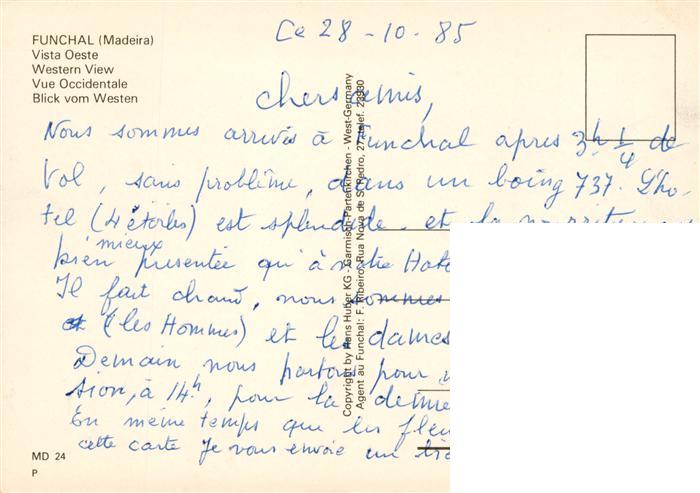 FUNCHAL (Madeira)
Vista Oeste
Western View
Vue Occidentale
Blick vom Westen
Ce 28-10-85
Chers amis,
Nous sommes arrivés à Funchal apres 3h 1/4 de
Vol, sans problême, dans un boing 737. L'ho-
tel (4 étoiles) est splendide et la
mieux
bien presentée qu'à notre
Il fait chaud, nous sommes
(les Hommes) et les dames
Demain nous partons pour
sion, à 14h, pour la
En même temps que les
cette carte je vous envoie un
MD 24
P
Copyright by Hans Huber KG - Garmisch-Partenkirchen - West-Germany
Agent au Funchal: F. Ribeiro, Rua Nova de S. Pedro, 27, telef. 23930